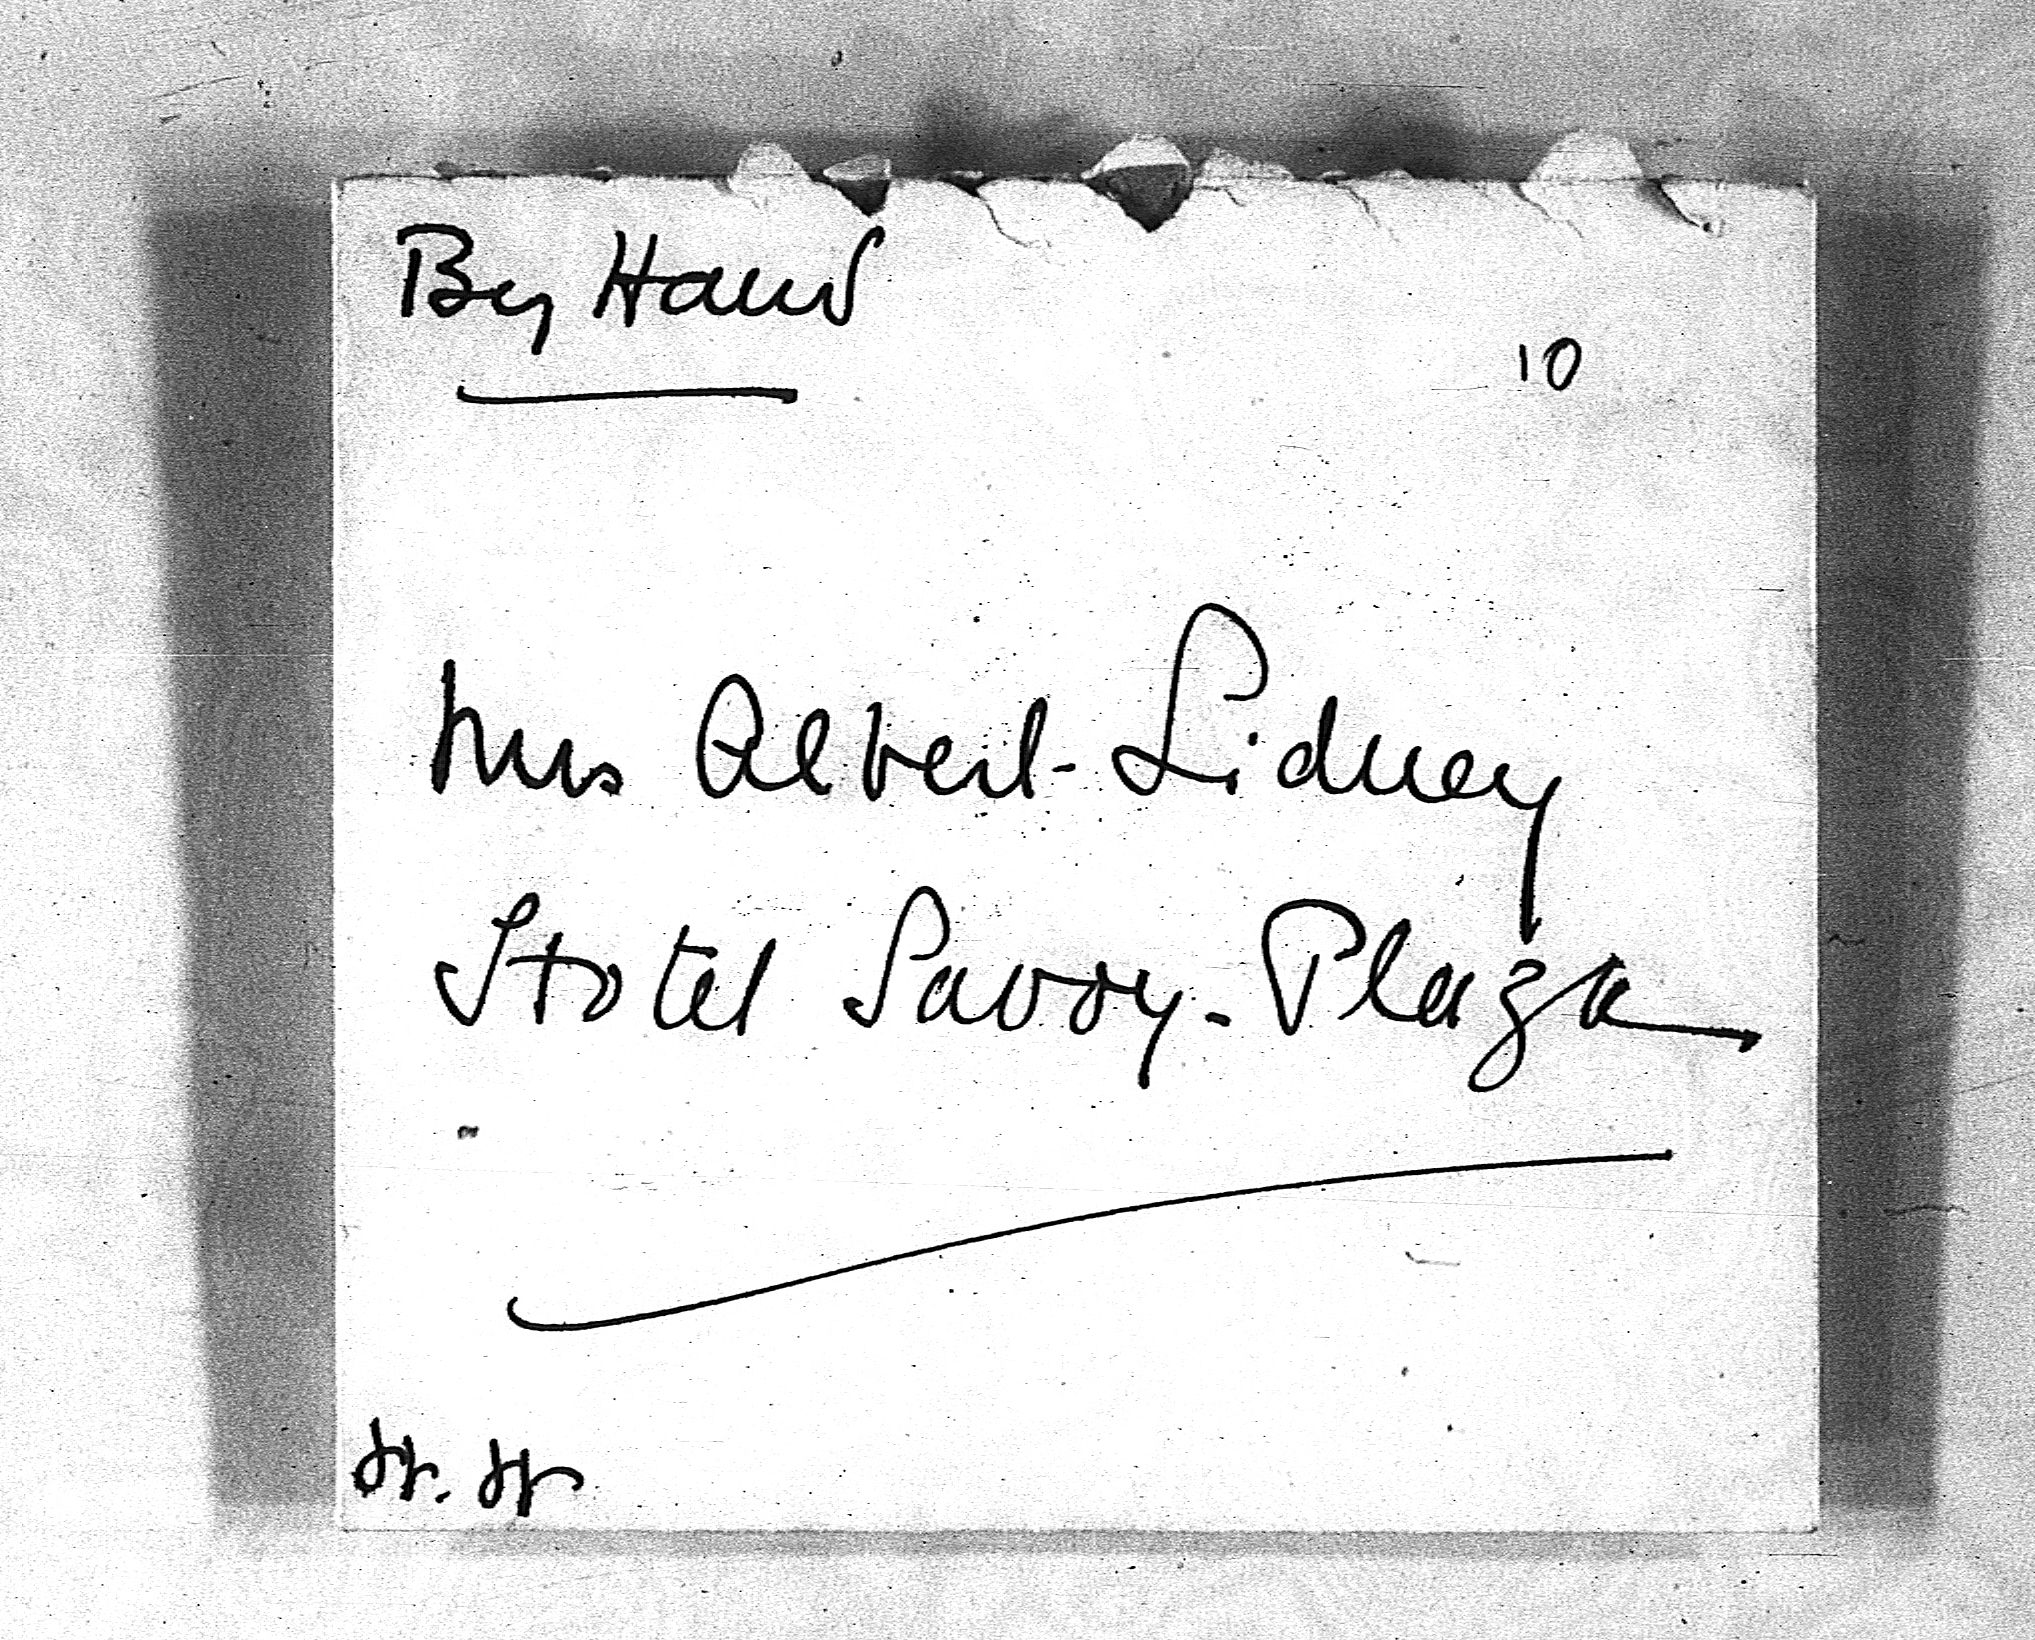 By Hand
10
Mrs Albert Sidney
Hotel Savoy-Plaza